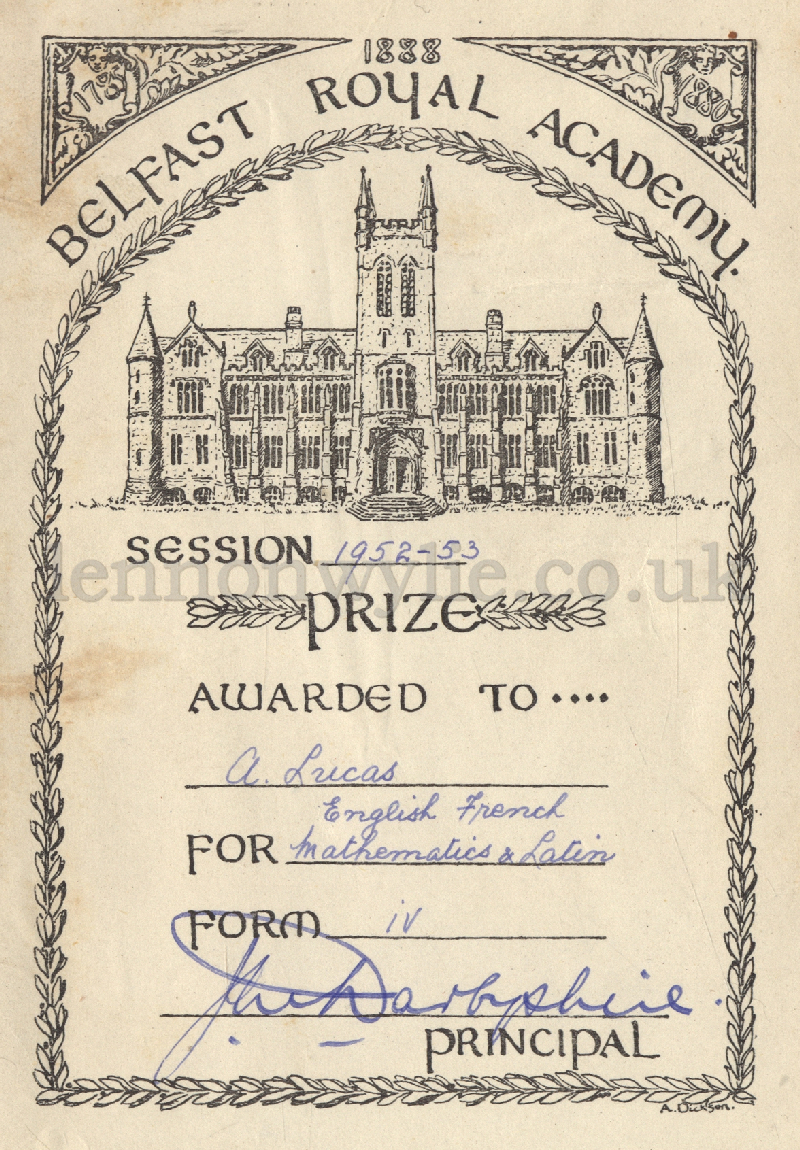 1888
1785
1880
BELFAST ROYAL ACADEMY.
SESSION 1952-53
lennonwylie.co.uk
PRIZE
AWARDED TO ....
A. Lucas
English French
FOR Mathematics & Latin
FORM iv
Darbyshire.
PRINCIPAL
A. Dickson.